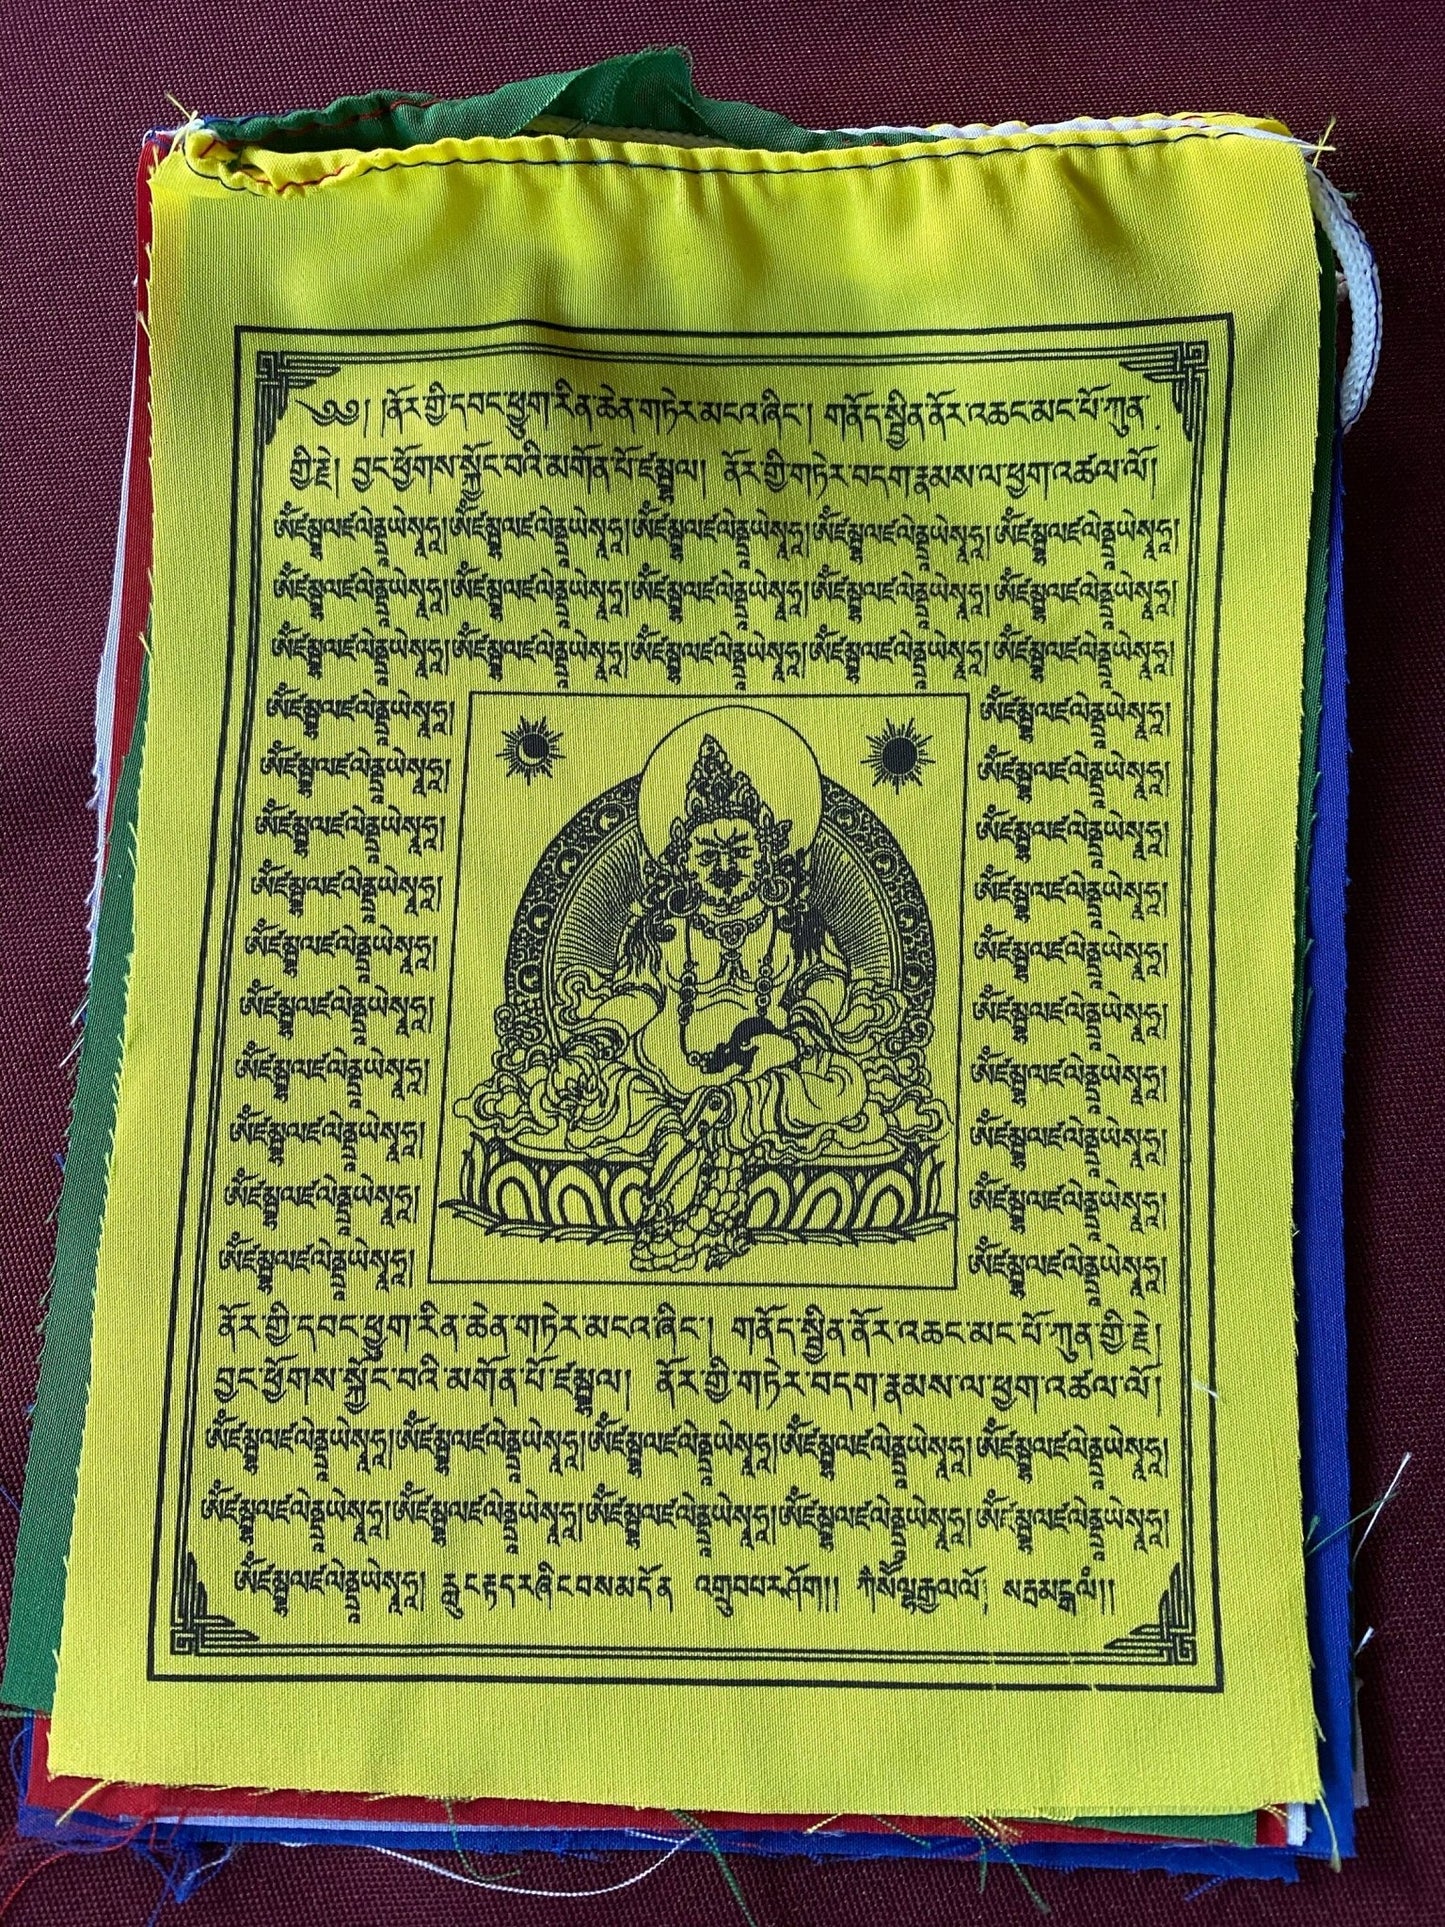 ༄༅། །ནོར་གྱི་དབང་ཕྱུག་རིན་ཆེན་གཏེར་མངའ་ཞིང་། གནོད་སྦྱིན་ནོར་འཆང་མང་པོ་ཀུན་
གྱི་རྗེ། བྱང་ཕྱོགས་སྐྱོང་བའི་མགོན་པོ་ཛམྦྷལ། ནོར་གྱི་གཏེར་བདག་རྣམས་ལ་ཕྱག་འཚལ་ལོ།
ཨོཾཛམྦྷལཛལེནྡྲཡེསྭཱཧཱ།ཨོཾཛམྦྷལཛལེནྡྲཡེསྭཱཧཱ།ཨོཾཛམྦྷལཛལེནྡྲཡེསྭཱཧཱ།ཨོཾཛམྦྷལཛལེནྡྲཡེསྭཱཧཱ།ཨོཾཛམྦྷལཛལེནྡྲཡེསྭཱཧཱ།
ཨོཾཛམྦྷལཛལེནྡྲཡེསྭཱཧཱ།ཨོཾཛམྦྷལཛལེནྡྲཡེསྭཱཧཱ།ཨོཾཛམྦྷལཛལེནྡྲཡེསྭཱཧཱ།ཨོཾཛམྦྷལཛལེནྡྲཡེསྭཱཧཱ།ཨོཾཛམྦྷལཛལེནྡྲཡེསྭཱཧཱ།
ཨོཾཛམྦྷལཛལེནྡྲཡེསྭཱཧཱ།ཨོཾཛམྦྷལཛལེནྡྲཡེསྭཱཧཱ།ཨོཾཛམྦྷལཛལེནྡྲཡེསྭཱཧཱ།ཨོཾཛམྦྷལཛལེནྡྲཡེསྭཱཧཱ།ཨོཾཛམྦྷལཛལེནྡྲཡེསྭཱཧཱ།
ཨོཾཛམྦྷལཛལེནྡྲཡེསྭཱཧཱ། ཨོཾཛམྦྷལཛལེནྡྲཡེསྭཱཧཱ།
ཨོཾཛམྦྷལཛལེནྡྲཡེསྭཱཧཱ། ཨོཾཛམྦྷལཛལེནྡྲཡེསྭཱཧཱ།
ཨོཾཛམྦྷལཛལེནྡྲཡེསྭཱཧཱ། ཨོཾཛམྦྷལཛལེནྡྲཡེསྭཱཧཱ།
ཨོཾཛམྦྷལཛལེནྡྲཡེསྭཱཧཱ། ཨོཾཛམྦྷལཛལེནྡྲཡེསྭཱཧཱ།
ཨོཾཛམྦྷལཛལེནྡྲཡེསྭཱཧཱ། ཨོཾཛམྦྷལཛལེནྡྲཡེསྭཱཧཱ།
ཨོཾཛམྦྷལཛལེནྡྲཡེསྭཱཧཱ། ཨོཾཛམྦྷལཛལེནྡྲཡེསྭཱཧཱ།
ཨོཾཛམྦྷལཛལེནྡྲཡེསྭཱཧཱ། ཨོཾཛམྦྷལཛལེནྡྲཡེསྭཱཧཱ།
ཨོཾཛམྦྷལཛལེནྡྲཡེསྭཱཧཱ། ཨོཾཛམྦྷལཛལེནྡྲཡེསྭཱཧཱ།
ཨོཾཛམྦྷལཛལེནྡྲཡེསྭཱཧཱ། ཨོཾཛམྦྷལཛལེནྡྲཡེསྭཱཧཱ།
ཨོཾཛམྦྷལཛལེནྡྲཡེསྭཱཧཱ། ཨོཾཛམྦྷལཛལེནྡྲཡེསྭཱཧཱ།
ནོར་གྱི་དབང་ཕྱུག་རིན་ཆེན་གཏེར་མངའ་ཞིང་། གནོད་སྦྱིན་ནོར་འཆང་མང་པོ་ཀུན་གྱི་རྗེ།
བྱང་ཕྱོགས་སྐྱོང་བའི་མགོན་པོ་ཛམྦྷལ། ནོར་གྱི་གཏེར་བདག་རྣམས་ལ་ཕྱག་འཚལ་ལོ།
ཨོཾཛམྦྷལཛལེནྡྲཡེསྭཱཧཱ།ཨོཾཛམྦྷལཛལེནྡྲཡེསྭཱཧཱ།ཨོཾཛམྦྷལཛལེནྡྲཡེསྭཱཧཱ།ཨོཾཛམྦྷལཛལེནྡྲཡེསྭཱཧཱ།ཨོཾཛམྦྷལཛལེནྡྲཡེསྭཱཧཱ།
ཨོཾཛམྦྷལཛལེནྡྲཡེསྭཱཧཱ།ཨོཾཛམྦྷལཛལེནྡྲཡེསྭཱཧཱ།ཨོཾཛམྦྷལཛལེནྡྲཡེསྭཱཧཱ།ཨོཾཛམྦྷལཛལེནྡྲཡེསྭཱཧཱ།ཨོཾཛམྦྷལཛལེནྡྲཡེསྭཱཧཱ།
ཨོཾཛམྦྷལཛལེནྡྲཡེསྭཱཧཱ། རླུངརྟདརཞིངབསམདོན འགྲུབཔརཤོག།། སརྦམངྒལཾ།།